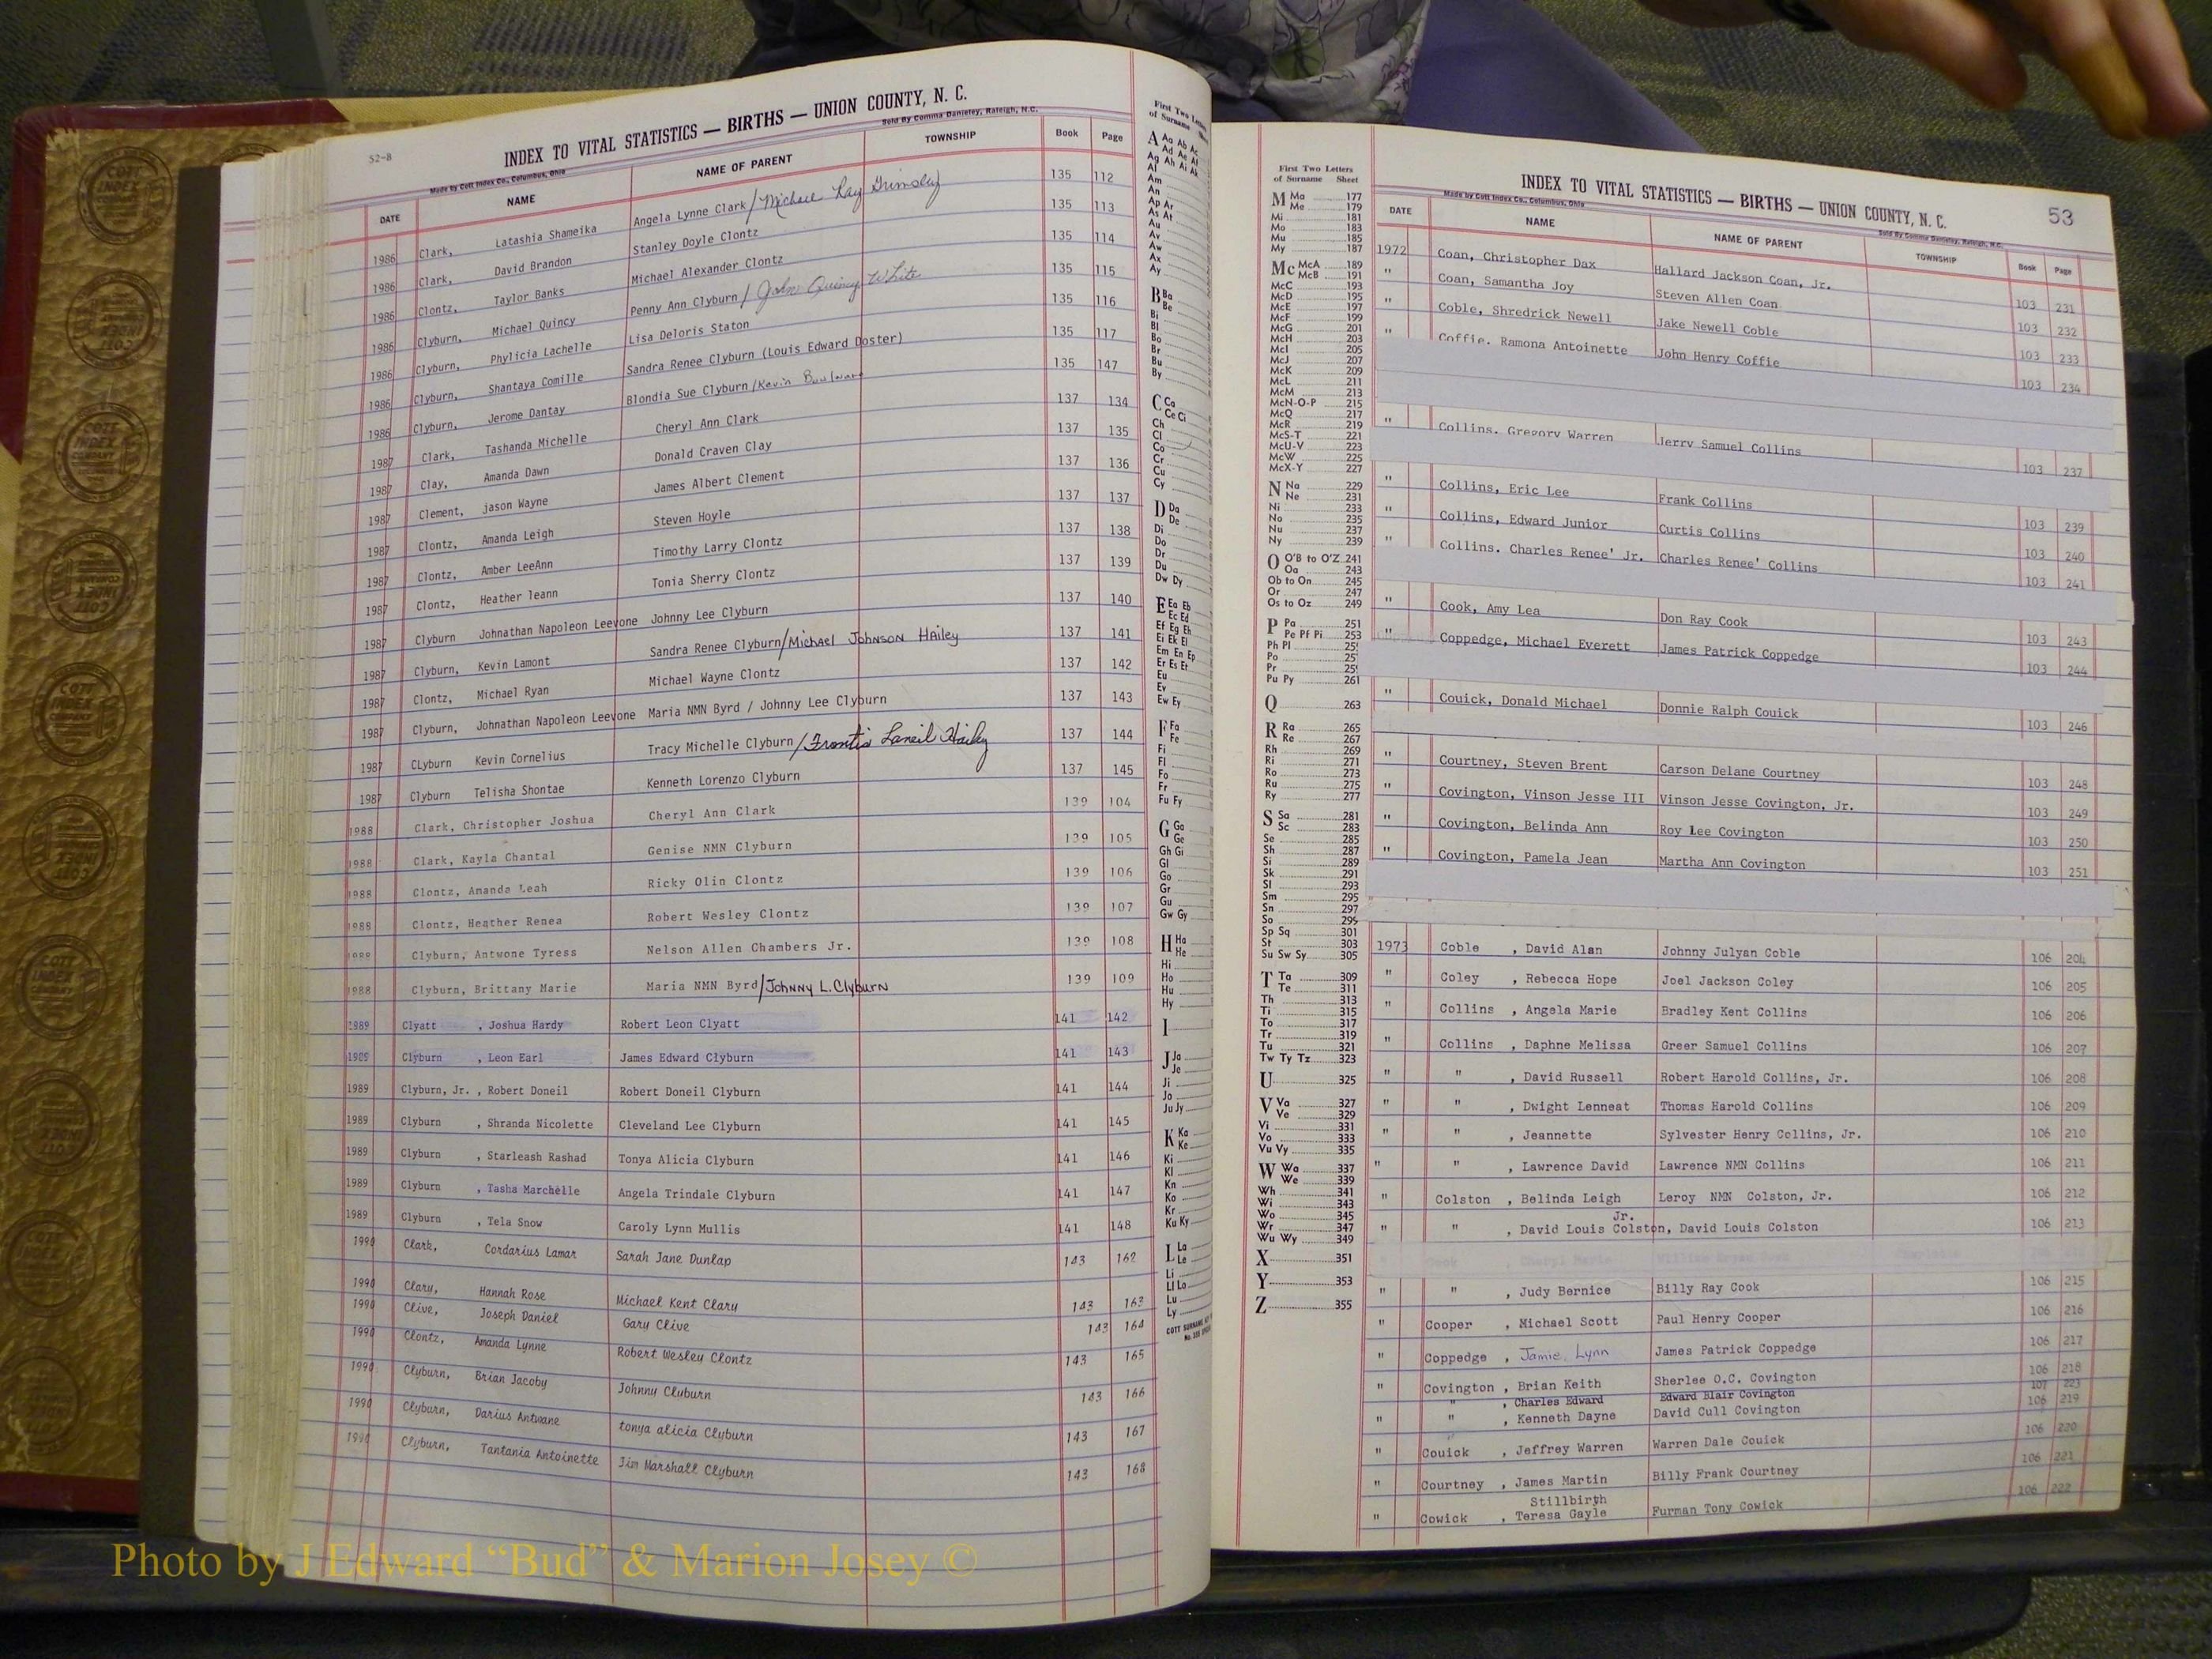 52-B
INDEX TO VITAL STATISTICS — BIRTHS — UNION COUNTY, N. C.
Made by Cott Index Co., Columbus, Ohio
Sold By Comma Danieley, Raleigh, N.C.
DATE NAME NAME OF PARENT TOWNSHIP Book Page
1986 Clark, Latashia Shameika Angela Lynne Clark / Michael Ray Grimsley 135 112
1986 Clark, David Brandon Stanley Doyle Clontz 135 113
1986 Clontz, Taylor Banks Michael Alexander Clontz 135 114
1986 Clyburn, Michael Quincy Penny Ann Clyburn / John Quincy White 135 115
1986 Clyburn, Phylicia Lachelle Lisa Deloris Staton 135 116
1986 Clyburn, Shantaya Comille Sandra Renee Clyburn (Louis Edward Doster) 135 117
1986 Clyburn, Jerome Dantay Blondia Sue Clyburn / Kevin 135 147
1987 Clark, Tashanda Michelle Cheryl Ann Clark 137 134
1987 Clay, Amanda Dawn Donald Craven Clay 137 135
1987 Clement, jason Wayne James Albert Clement 137 136
1987 Clontz, Amanda Leigh Steven Hoyle 137 137
1987 Clontz, Amber LeeAnn Timothy Larry Clontz 137 138
1987 Clontz, Heather leann Tonia Sherry Clontz 137 139
1987 Clyburn Johnathan Napoleon Leevone Johnny Lee Clyburn 137 140
1987 Clyburn, Kevin Lamont Sandra Renee Clyburn / Michael Johnson Hailey 137 141
1987 Clontz, Michael Ryan Michael Wayne Clontz 137 142
1987 Clyburn, Johnathan Napoleon Leevone Maria NMN Byrd / Johnny Lee Clyburn 137 143
1987 CLyburn Kevin Cornelius Tracy Michelle Clyburn / Frontis Laneil Hailey 137 144
1987 Clyburn Telisha Shontae Kenneth Lorenzo Clyburn 137 145
1988 Clark, Christopher Joshua Cheryl Ann Clark 139 104
1988 Clark, Kayla Chantal Genise NMN Clyburn 139 105
1988 Clontz, Amanda Leah Ricky Olin Clontz 139 106
1988 Clontz, Heather Renea Robert Wesley Clontz 139 107
1988 Clyburn, Antwone Tyress Nelson Allen Chambers Jr. 139 108
1988 Clyburn, Brittany Marie Maria NMN Byrd / Johnny L. Clyburn 139 109
1989 Clyatt , Joshua Hardy Robert Leon Clyatt 141 142
1989 Clyburn , Leon Earl James Edward Clyburn 141 143
1989 Clyburn, Jr. , Robert Doneil Robert Doneil Clyburn 141 144
1989 Clyburn , Shranda Nicolette Cleveland Lee Clyburn 141 145
1989 Clyburn , Starleash Rashad Tonya Alicia Clyburn 141 146
1989 Clyburn , Tasha Marchelle Angela Trindale Clyburn 141 147
1989 Clyburn , Tela Snow Caroly Lynn Mullis 141 148
1990 Clark, Cordarius Lamar Sarah Jane Dunlap 143 162
1990 Clary, Hannah Rose Michael Kent Clary 143 163
1990 Clive, Joseph Daniel Gary Clive 143 164
1990 Clontz, Amanda Lynne Robert Wesley Clontz 143 165
1990 Clyburn, Brian Jacoby Johnny Clyburn 143 166
1990 Clyburn, Darius Antwane tonya alicia Clyburn 143 167
1990 Clyburn, Tantania Antoinette Jim Marshall Clyburn 143 168
First Two Letters
of Surname
A Aa Ab Ac
Ad Ae Af
Ag Ah Ai Ak
Al
Am
An
Ap Ar
As At
Au
Av
Aw
Ax
Ay
B Ba
Be
Bi
Bl
Bo
Br
Bu
By
C Ca
Ce Ci
Ch
Cl
Co
Cr
Cu
Cy
D Da
De
Di
Do
Dr
Du
Dw Dy
E Ea Eb
Ec Ed
Ef Eg Eh
Ei Ek El
Em En Ep
Er Es Et
Eu
Ev
Ew Ey
F Fa
Fe
Fi
Fl
Fo
Fr
Fu Fy
G Ga
Ge
Gh Gi
Gl
Go
Gr
Gu
Gw Gy
H Ha
He
Hi
Ho
Hu
Hy
I
J Ja
Je
Ji
Jo
Ju Jy
K Ka
Ke
Ki
Kl
Kn
Ko
Kr
Ku Ky
L La
Le
Li
Ll Lo
Lu
Ly
First Two Letters
of Surname Sheet
M Ma 177
Me 179
Mi 181
Mo 183
Mu 185
My 187
Mc McA 189
McB 191
McC 193
McD 195
McE 197
McF 199
McG 201
McH 203
McI 205
McJ 207
McK 209
McL 211
McM 213
McN-O-P 215
McQ 217
McR 219
McS-T 221
McU-V 223
McW 225
McX-Y 227
N Na 229
Ne 231
Ni 233
No 235
Nu 237
Ny 239
O O'B to O'Z 241
Oa 243
Ob to On 245
Or 247
Os to Oz 249
P Pa 251
Pe Pf Pi 253
Ph Pl 25
Po 25
Pr 25
Pu Py 261
Q 263
R Ra 265
Re 267
Rh 269
Ri 271
Ro 273
Ru 275
Ry 277
S Sa 281
Sc 283
Se 285
Sh 287
Si 289
Sk 291
Sl 293
Sm 295
Sn 297
So 299
Sp Sq 301
St 303
Su Sw Sy 305
T Ta 309
Te 311
Th 313
Ti 315
To 317
Tr 319
Tu 321
Tw Ty Tz 323
U 325
V Va 327
Ve 329
Vi 331
Vo 333
Vu Vy 335
W Wa 337
We 339
Wh 341
Wi 343
Wo 345
Wr 347
Wu Wy 349
X 351
Y 353
Z 355
INDEX TO VITAL STATISTICS — BIRTHS — UNION COUNTY, N. C. 53
Made by Cott Index Co., Columbus, Ohio
Sold By Comma Danieley, Raleigh, N.C.
DATE NAME NAME OF PARENT TOWNSHIP Book Page
1972 Coan, Christopher Dax Hallard Jackson Coan, Jr. 103 231
" Coan, Samantha Joy Steven Allen Coan 103 232
" Coble, Shredrick Newell Jake Newell Coble 103 233
" Coffie, Ramona Antoinette John Henry Coffie 103 234
" Collins, Gregory Warren Jerry Samuel Collins 103 237
" Collins, Eric Lee Frank Collins 103 239
" Collins, Edward Junior Curtis Collins 103 240
" Collins, Charles Renee' Jr. Charles Renee' Collins 103 241
" Cook, Amy Lea Don Ray Cook 103 243
" Coppedge, Michael Everett James Patrick Coppedge 103 244
" Couick, Donald Michael Donnie Ralph Couick 103 246
" Courtney, Steven Brent Carson Delane Courtney 103 248
" Covington, Vinson Jesse III Vinson Jesse Covington, Jr. 103 249
" Covington, Belinda Ann Roy Lee Covington 103 250
" Covington, Pamela Jean Martha Ann Covington 103 251
1973 Coble , David Alan Johnny Julyan Coble 106 204
" Coley , Rebecca Hope Joel Jackson Coley 106 205
" Collins , Angela Marie Bradley Kent Collins 106 206
" Collins , Daphne Melissa Greer Samuel Collins 106 207
" " , David Russell Robert Harold Collins, Jr. 106 208
" " , Dwight Lenneat Thomas Harold Collins 106 209
" " , Jeannette Sylvester Henry Collins, Jr. 106 210
" " , Lawrence David Lawrence NMN Collins 106 211
" Colston , Belinda Leigh Leroy NMN Colston, Jr. 106 212
Jr.
" " , David Louis Colston, David Louis Colston 106 213
" " , Judy Bernice Billy Ray Cook 106 215
" Cooper , Michael Scott Paul Henry Cooper 106 216
" Coppedge , Jamie Lynn James Patrick Coppedge 106 217
" Covington , Brian Keith Sherlee O.C. Covington 106 218
" , Charles Edward Edward Blair Covington 107 223
" " , Kenneth Dayne David Cull Covington 106 219
" Couick , Jeffrey Warren Warren Dale Couick 106 220
" Courtney , James Martin Billy Frank Courtney 106 221
Stillbirth
" Cowick , Teresa Gayle Furman Tony Cowick 106 222
COTT
INDEX
COMPANY
Photo by J Edward “Bud” & Marion Josey ©